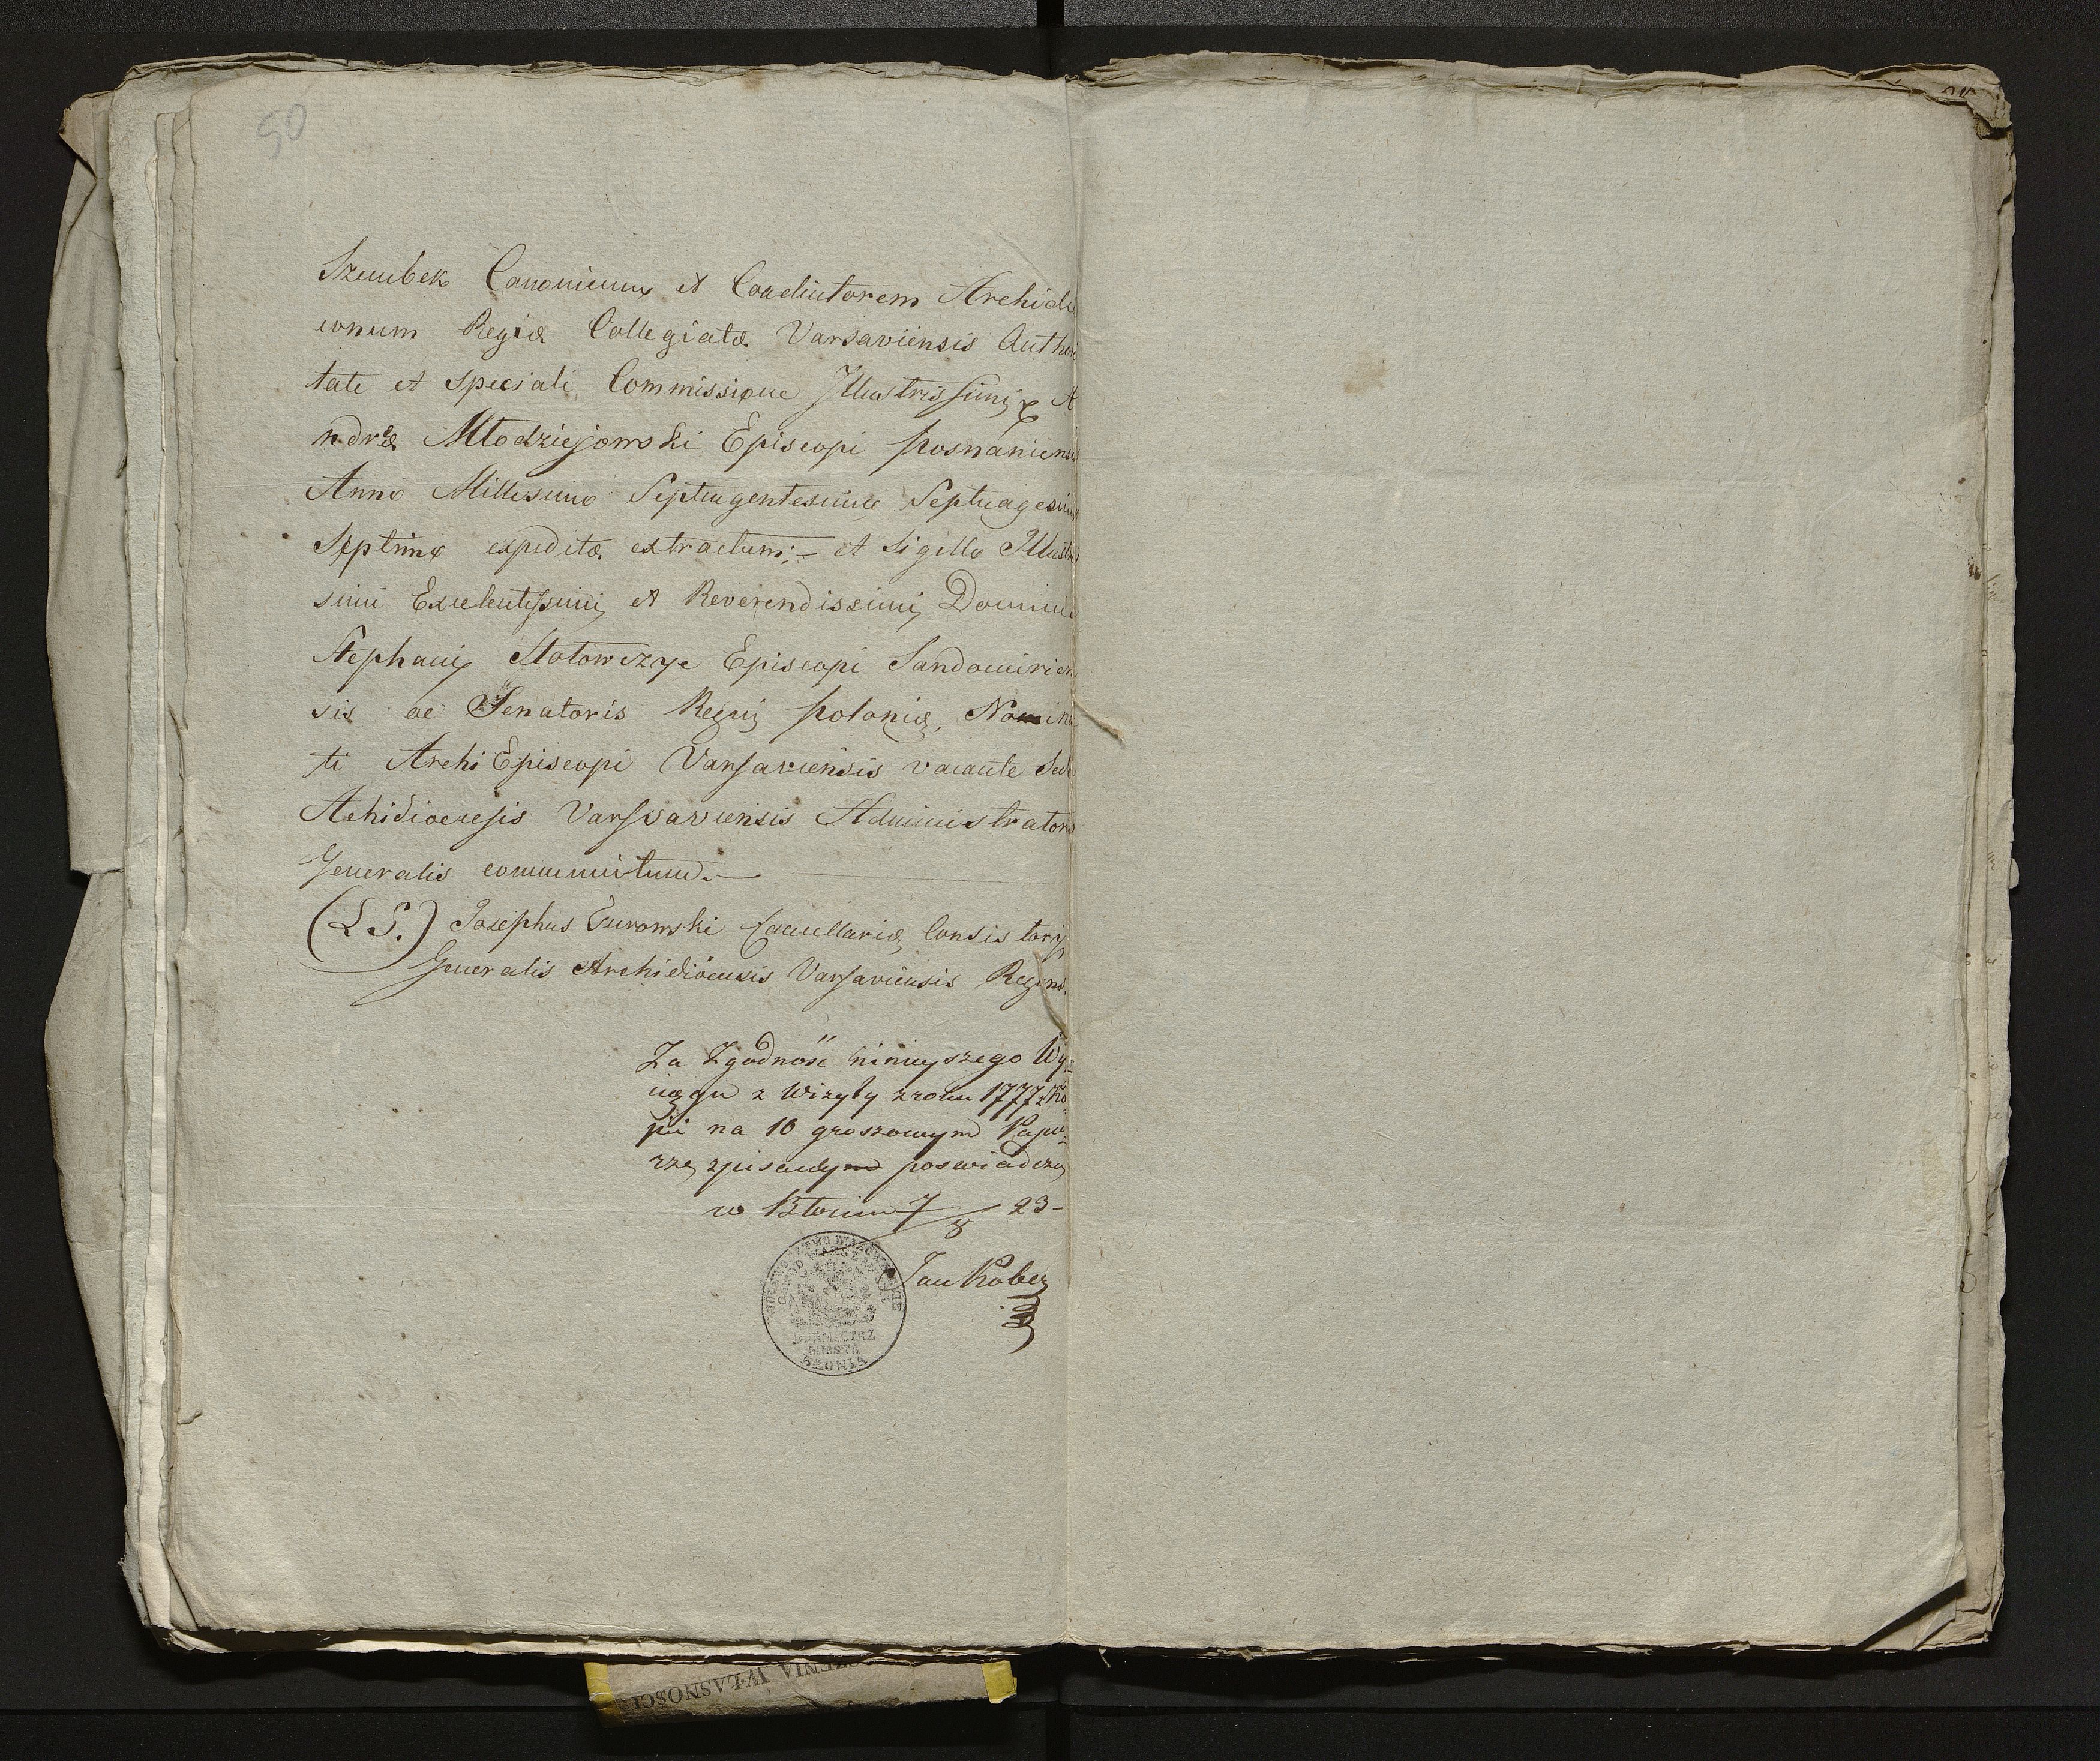 50
Szembek Canonicum et Coadiutorem Archidia
conum Regiæ Collegiatæ Varsaviensis Authori
tate et speciali Commissione Illustrissimi A
ndreæ Młodziejowski Episcopi Posnaniensis
Anno Millesimo Septuagentesimo Septuagesimo
Septimo expeditæ extractum; et Sigillo Illustris
simi Excelentissimi et Reverendissimi Domini
Stephani Hołowczyc Episcopi Sandomirien
sis ac Senatoris Regni Poloniæ, Nomina
ti Archi Episcopi Varsaviensis vacante Sede
Achidiocesis Varsaviensis Administratoris
Generalis communitum.—
(L S.) Josephus Turowski Cancellariæ Consistorij
Generalis Archidiöcesis Varsaviensis Regens.
Za Zgodność ninieyszego Wy-
ciągu z Wizyty z roku 1777 z Ko
pii na 10 groszowym Papie-
rze, spisanym poswiadcza
w Błoniu 7/8 23-
Jan Kober
BURMISTRZ
MIASTA
BŁONIA
WŁASNOSCI